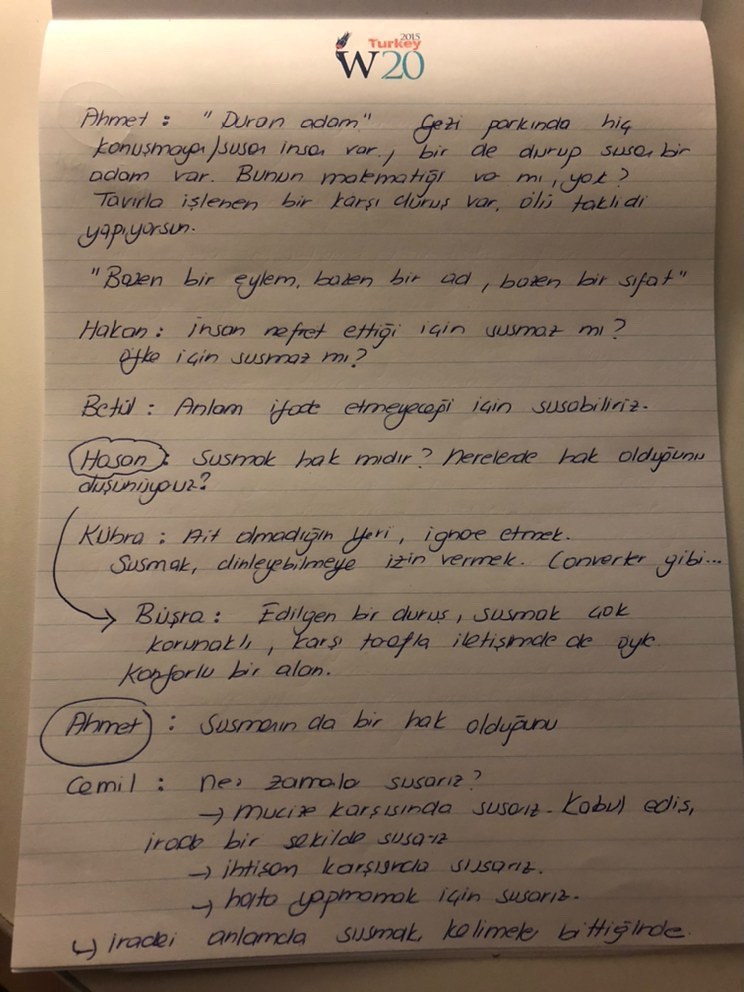 2015
Turkey
W20
Ahmet : "Duran adam" Gezi parkında hiç
konuşmayan/susan insan var., bir de durup susan bir
adam var. Bunun matematiği var mı, yok?
Tavırla işlenen bir karşı duruş var, ölü taklidi
yapıyorsun.
"Bazen bir eylem, bazen bir ad, bazen bir sıfat"
Hakan : insan nefret ettiği için susmaz mı?
öfke için susmaz mı?
Betül : Anlam ifade etmeyeceği için susabiliriz.
Hasan : Susmak hak mıdır? Nerelerde hak olduğunu
düşünüyoruz?
Kübra : Ait olmadığın yeri, ignore etmek.
Susmak, dinleyebilmeye izin vermek. Converter gibi...
Büşra : Edilgen bir duruş, susmak çok
korunaklı, karşı tarafla iletişimde de öyle.
Konforlu bir alan.
Ahmet : Susmanın da bir hak olduğunu
Cemil : Ne zamanlar susarız?
→ mucize karşısında susarız. Kabul ediş,
bir şekilde susarız
→ karşısında susarız.
→ hata yapmamak için susarız.
↳ iradei anlamda susmak, kelimeler bittiğinde.